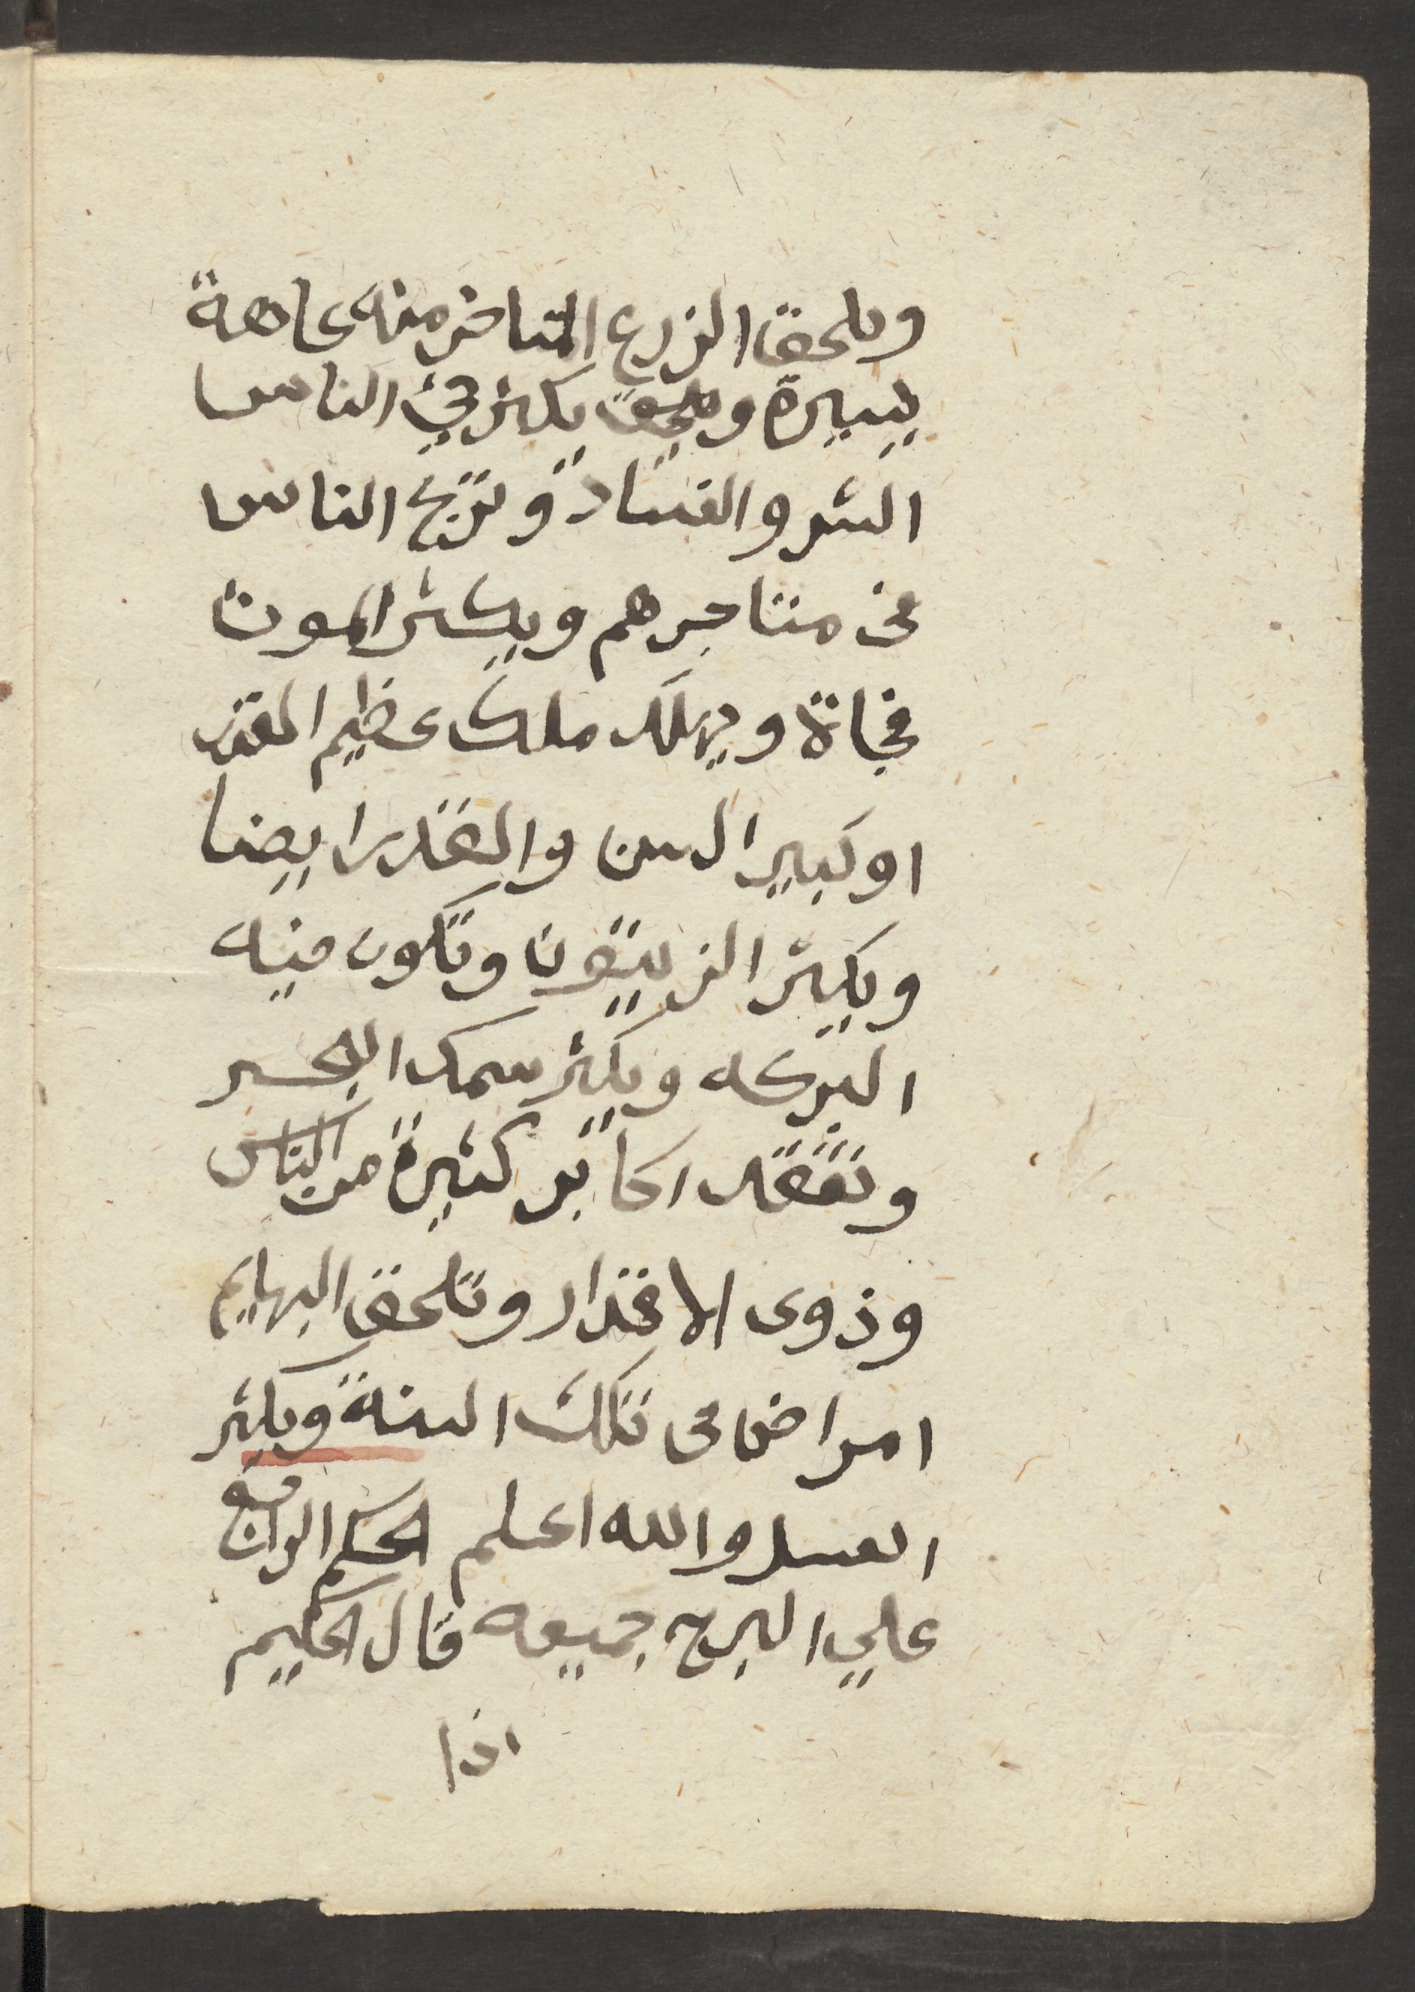 ويلحق الزرع المتاخر منه عاهة
يسيرة ويكثر في الناس
الشر والفساد وتربح الناس
فى متاجرهم ويكثر الموت
فجاة ويهلك ملك عظيم القدر
او كبير السن والقدر ايضا
ويكثر الزيتون وتكون فيه
البركه ويكثر سمك البحر
وتفقد اكابر كثيرة من الناس
وذوى الاقدار وتلحق البهايم
امراض فى تلك السنة ويكثر
العسل والله اعلم الحكم الرابع
علي البرج جميعه قال الحكيم
اذا